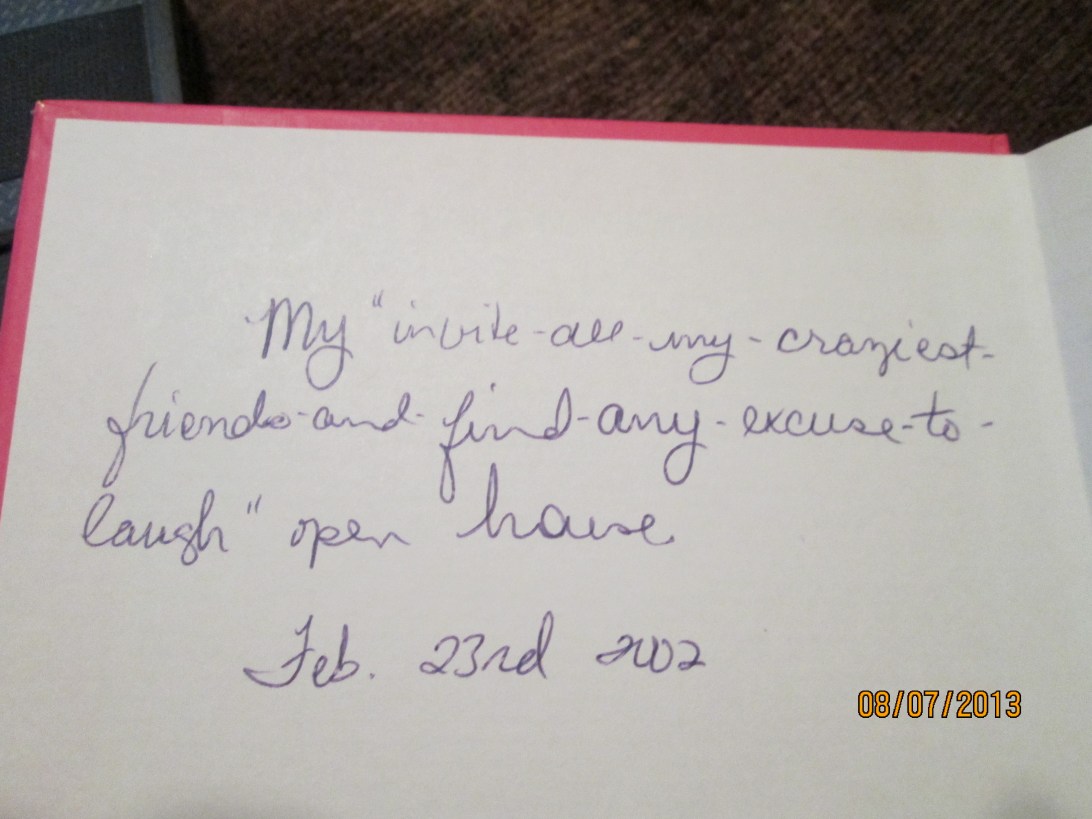 My "invite-all-my-craziest-
friends-and-find-any-excuse-to-
laugh" open house
Feb. 23rd 2002
08/07/2013